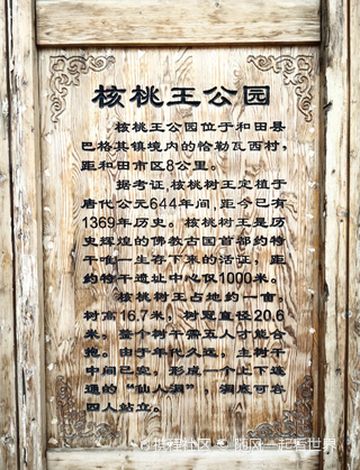 核桃王公园
核桃王公园位于和田县
巴格其镇境内的恰勒瓦西村，
距和田市区8公里。
据考证，核桃树王定植于
唐代公元644年间，距今已有
1369年历史。核桃树王是历
史辉煌的佛教古国首都约特
干唯一生存下来的活证，距
约特干遗址中心仅1000米。
核桃树王占地约一亩，
树高16.7米，树冠直径20.6
米，整个树干需五人才能合
抱。由于年代久远，主树干
中间已空，形成一个上下连
通的“仙人洞”，洞底可容
四人站立。
携程社区 @ 随风一起看世界